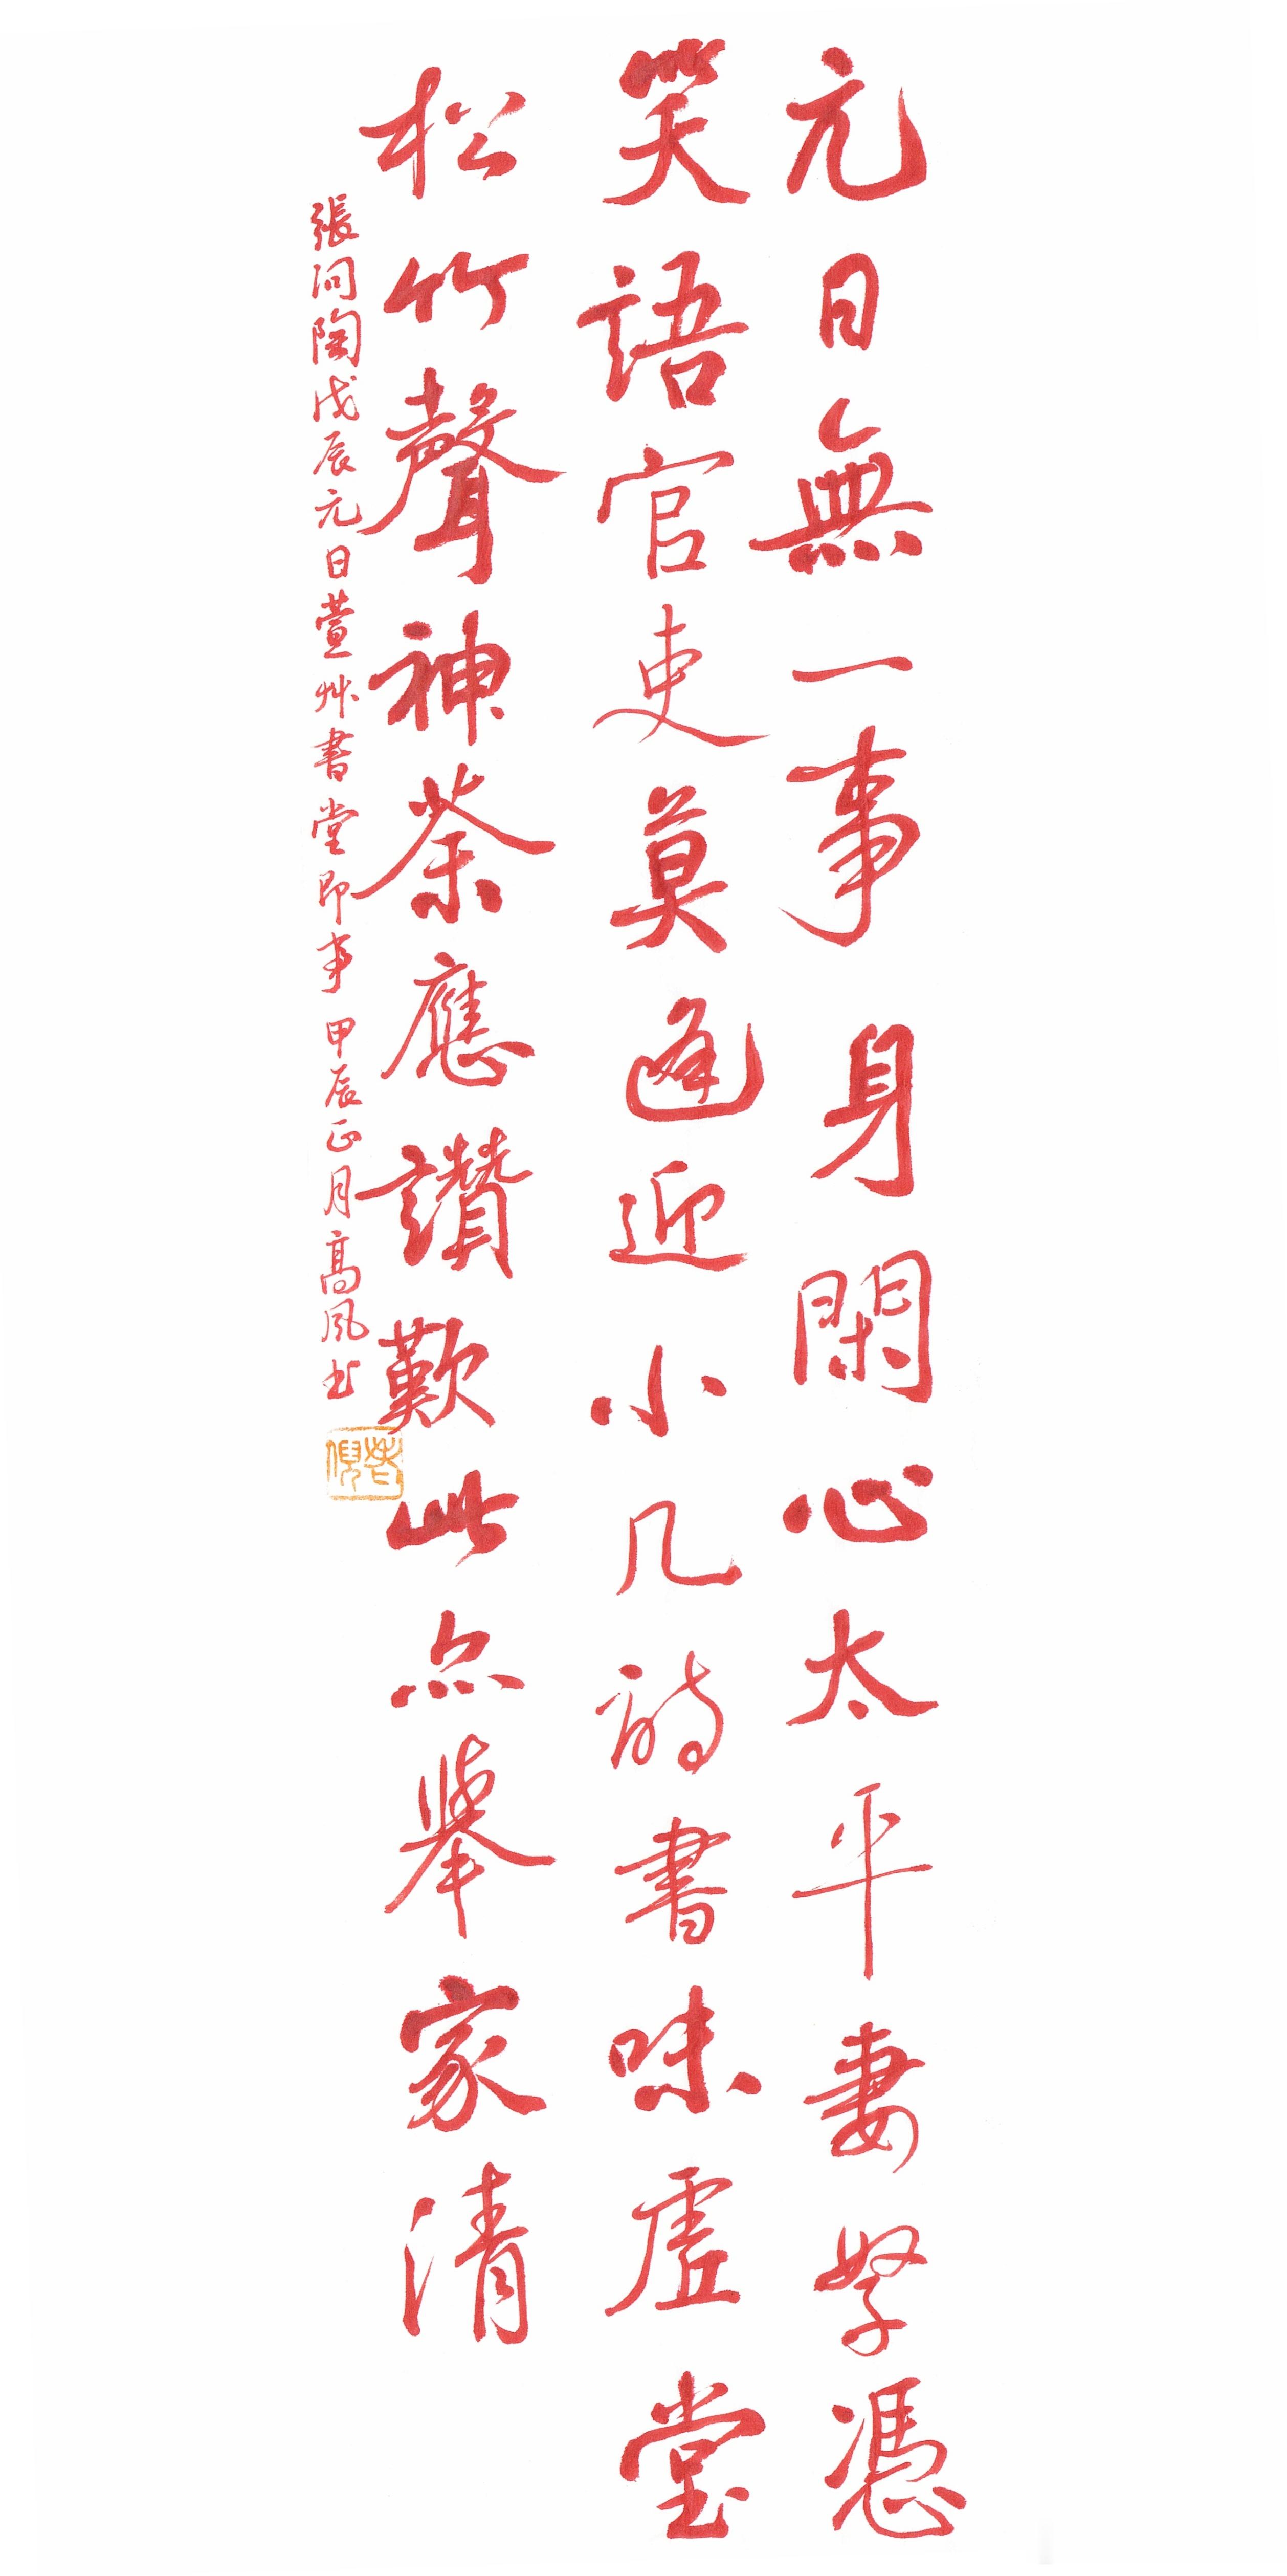 元日無一事身閑心太平妻孥憑
笑語官吏莫逢迎小几詩書味虛堂
松竹聲神荼應讚歎此亦舉家清
張問陶戊辰元日萱艸書堂即事甲辰正月高風書